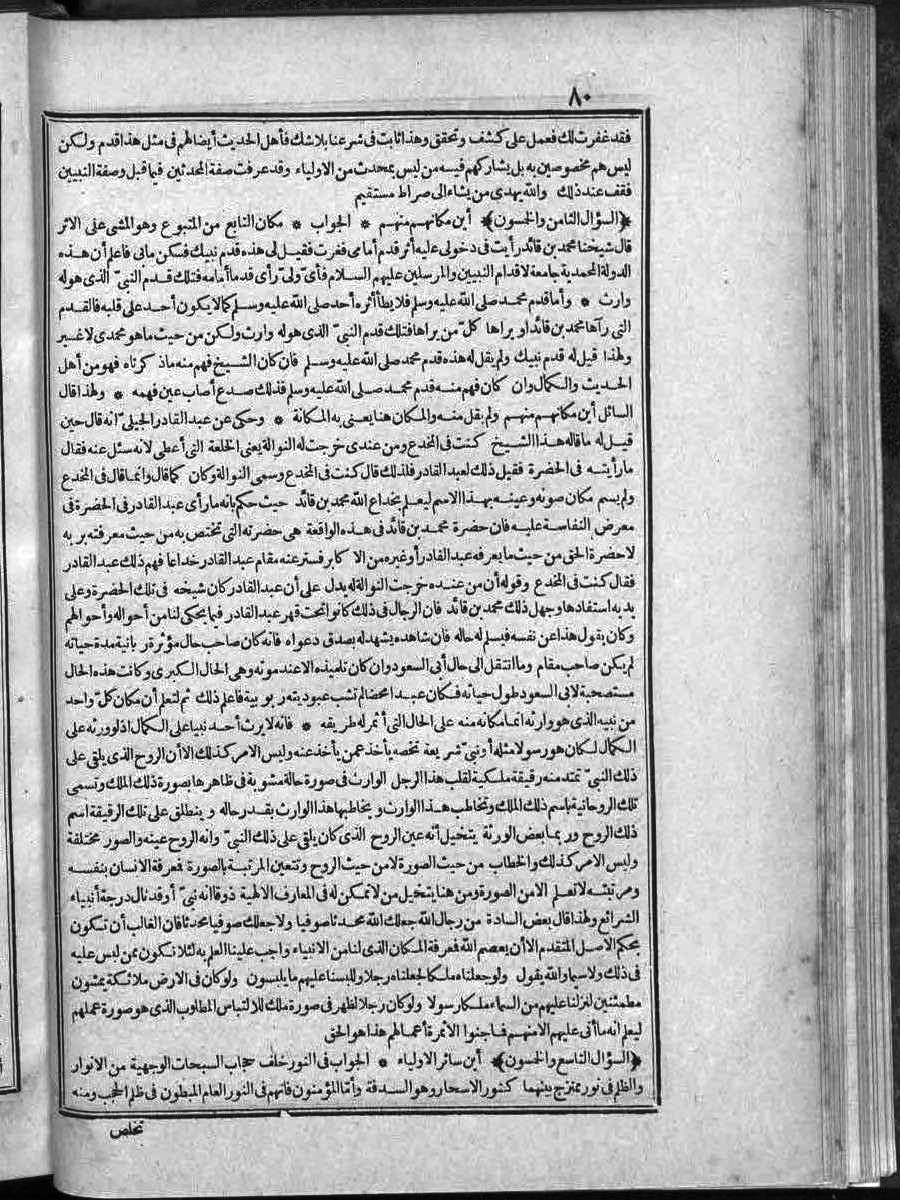 ٨٠
فقد غفرت لك فعمل على كشف وتحقق وهذا ثابت فى شرعنا بلا شك فأهل الحديث أيضا لهم فى مثل هذا قدم ولكن
ليس هم مخصوصين به بل يشاركهم فيه من ليس بمحدث من الاولياء وقد عرفت صفة المحدثين فيما قيل وصفة النبيين
فقف عند ذلك والله يهدى من يشاء الى صراط مستقيم
﴿السؤال الثامن والخسون﴾ أين مكانهم منهم * الجواب * مكان التابع من المتبوع وهو المشى على الاثر
قال شيخنا محمد بن قائد رأيت فى دخولى عليه أثر قدم أمامى فغرت فقيل لى هذه قدم نبيك فسكن مابى فاعلم أن هذه
الدولة المحمدية جامعة لاقدام النبيين والمرسلين عليهم السلام فأىّ ولىّ رأى قدما أمامه فتلك قدم النبىّ الذى هو له
وارث * وأما قدم محمد صلى الله عليه وسلم فلا يطأ أثره أحد صلى الله عليه وسلم كما لا يكون أحد على قلبه فالقدم
التى رآها محمد بن قائد او يراها كلّ من يراها فتلك قدم النبىّ الذى هو له وارث ولكن من حيث ما هو محمدى لا غير
ولهذا قيل له قدم نبيك ولم يقل له هذه قدم محمد صلى الله عليه وسلم فان كان الشيخ فهم منه ماذ كرناه فهو من أهل
الحديث والكمال وان كان فهم منه قدم محمد صلى الله عليه وسلم فذلك صدع أصاب عين فهمه * ولهذا قال
السائل أين مكانهم منهم ولم يقل منه والمكان هنا يعنى به المكانة * وحكى عن عبد القادر الجيلىّ انه قال حين
قيل له ما قاله هذا الشيخ كنت فى المخدع ومن عندى خرجت له النوالة يعنى الخلعة التى أعطى لانه سئل عنه فقال
ما رأيته فى الحضرة فقيل ذلك لعبد القادر فلذلك قال كنت فى المخدع وسمى النوالة وكان كما قال وانما قال فى المخدع
ولم يسم مكان صونه وعينه بهذا الاسم ليعلم بخداع الله محمد بن قائد حيث حكم بانه ما رأى عبد القادر فى الحضرة فى
معرض النفاسة عليه فان حضرة محمد بن قائد فى هذه الواقعة هى حضرته التى تختص به من حيث معرفته بر به
لا حضرة الحق من حيث ما يعرفه عبد القادر أو غيره من الا كابر فستر عنه مقام عبد القادر خداعا فهم ذلك عبد القادر
فقال كنت فى المخدع وقوله أن من عنده خرجت النوالة له يدل على أن عبد القادر كان شيخه فى تلك الحضرة وعلى
يديه استفادها وجهل ذلك محمد بن قائد فان الرجال فى ذلك كانوا تحت قهر عبد القادر فيما يحكى لنا من أحواله وأحوالهم
وكان يقول هذا عن نفسه فيسلم له حاله فان شاهده يشهد له بصدق دعواه فانه كان صاحب حال مؤثرة ر بانية مدة حياته
لم يكن صاحب مقام وما انتقل الى حال أبى السعود وان كان تلميذه الا عند موته وهى الحال الكبرى وكانت هذه الحال
مستصحبة لابى السعود طول حياته فكان عبدا محضا لم تشب عبوديته ر بوبية فاعلم ذلك ثم لتعلم أن مكان كلّ واحد
من نبيه الذى هو وارثه انما مكانه منه على الحال التى أثمر له طريقه * فانه لا يرث أحد نبيا على الكمال اذ لو ورثه على
الكمال لكان هو رسولا مثله أو نبىّ شريعة تخصه يأخذ عمن يأخذ عنه وليس الامر كذلك الا أن الروح الذى يلقى على
ذلك النبىّ تمتد منه رقيقة ملكية لقلب هذا الرجل الوارث فى صورة حالة مشوبة فى ظاهرها بصورة ذلك الملك وتسمى
تلك الروحانية باسم ذلك الملك وتخاطب هذا الوارث و يخاطبها هذا الوارث بقدر حاله و ينطلق على تلك الرقيقة اسم
ذلك الروح ور بما بعض الورثة يتخيل أنه عين الروح الذى كان يلقى على ذلك النبىّ وانه الروح عينه والصور مختلفة
وليس الامر كذلك والخطاب من حيث الصورة لا من حيث الروح وتتعين المرتبة بالصورة فمعرفة الانسان بنفسه
ومرتبته لا تعلم الا من الصورة ومن هنا يتخيل من لا تمكن له فى المعارف الالهية ذوقا انه نبىّ أو قد نال درجة أنبياء
الشرائع ولهذا قال بعض السادة من رجال الله جعلك الله محدثا صوفيا ولا جعلك صوفيا محدثا فان الغالب أن تكون
بحكم الاصل المتقدم الا أن يعصم الله فمعرفة المكان الذى لنا من الانبياء واجب علينا العلم به لئلا نكون ممن لبس عليه
فى ذلك ولا سيما والله يقول ولو جعلناه ملكا لجعلناه رجلا وللبسنا عليهم ما يلبسون ولو كان فى الارض ملائكة يمشون
مطمئنين لنزلنا عليهم من السماء ملكا رسولا ولو كان رجلا لظهر فى صورة ملك للالتباس المطلوب الذى هو صورة عملهم
ليعلم انه ما أتى عليهم الا منهم فما جنوا الا ثمرة أعمالهم هذا هو الحق
﴿السؤال التاسع والخسون﴾ أين سائر الاولياء * الجواب فى النور خلف حجاب السبحات الوجهية من الانوار
والظلم فى نور ممتزج بينهما كنور الاسحار وهو السدفة وأما المؤمنون فانهم فى النور العام المبطون فى ظلم الحجب ومنه
تخلص